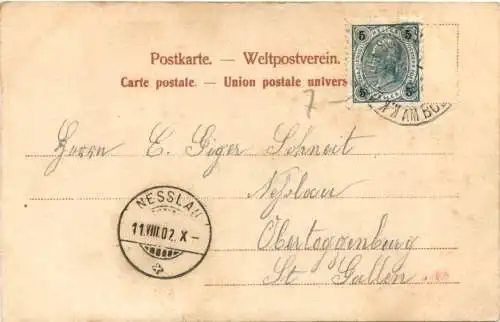 Postkarte. — Weltpostverein.
Carte postale. — Union postale univers
5 5
5 5
7 —
AM BOD
Herrn E. Giger Schneit
Nesslau
Obertoggenburg
St Gallen
NESSLAU
11.VIII.02. X –